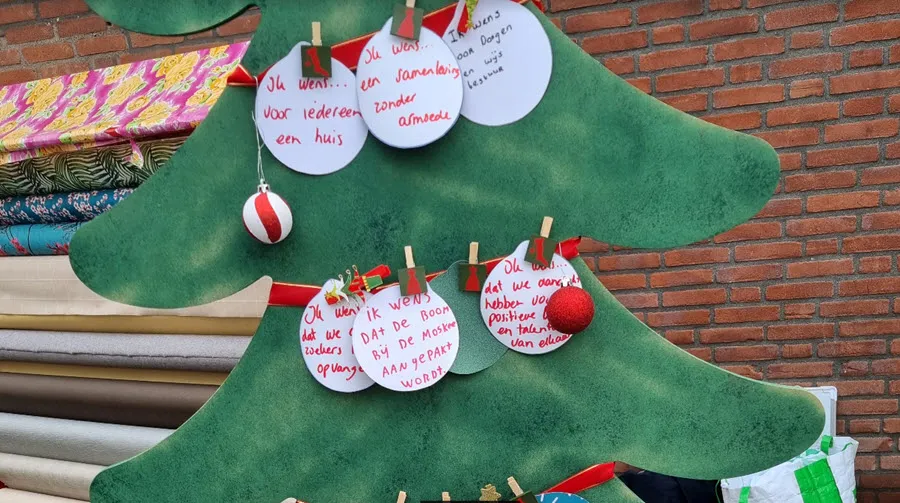 Ik wens...
voor iedereen
een huis
Ik wens...
een samenleving
zonder
armoede
Ik wens
voor Dongen
en wijs
bestuur
Ik wens
dat we
zoekers
opvange
ik wens
DAT DE BOOM
Bij DE Moskee
AANgePAKT
WORDT
Ik wens...
dat we
hebben
positieve
en talen
van elkaar